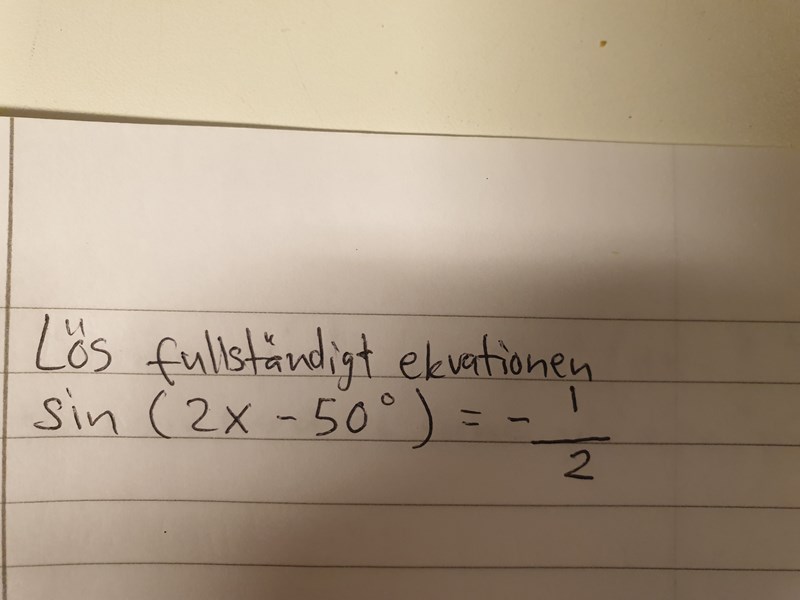 Lös fullständigt ekvationen
sin (2x - 50°) = - 1/2